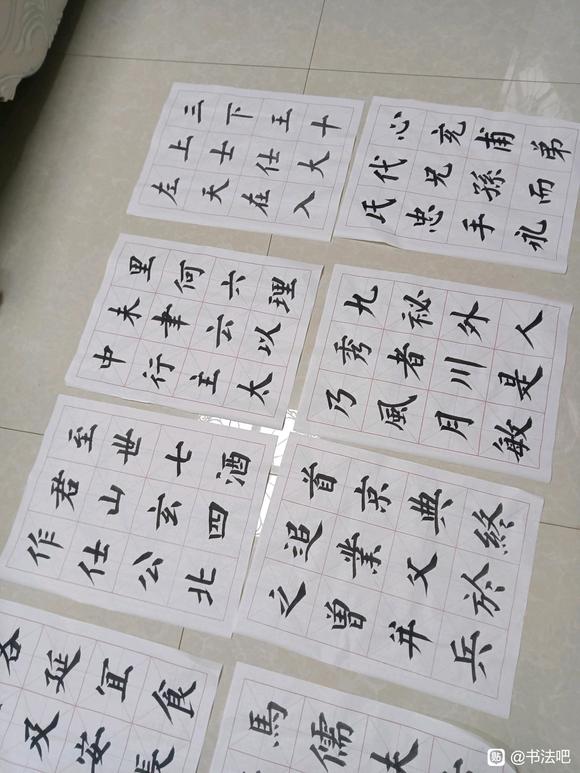 三下王十
上士仕大
左天在入
心充甫弟
代兄孫而
氏忠手礼
里何六理
未聿云以
中行主太
九祕外人
秀者川是
乃風月敏
至世七酒
君山玄四
作仕公北
首京典終
追業父於
之曾并兵
各延宜食
及安長
馬儒夫
@书法吧